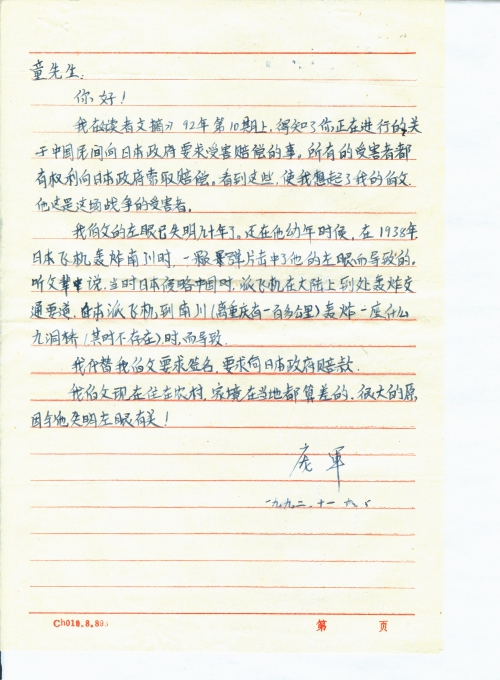 童先生.
你好!
我在《读者文摘》92年第10期上,得知了你正在进行的关
于中国民间向日本政府要求受害赔偿的事。所有的受害者都
有权利向日本政府索取赔偿。看到这些,使我想起了我的伯父.
他这是这场战争的受害者。
我伯父的左眼已失明几十年了。还在他幼年时候,在1938年
日本飞机轰炸南川时,一颗弹片击中了他的左眼而导致的,
听父辈说,当时日本侵略中国时,派飞机在大陆上到处轰炸交
通要道,日本派飞机到南川(离重庆有一百多公里)轰炸一座什么
九洞桥(其时不存在)时,而导致.
我代替我伯父要求签名,要求向日本政府赔款.
我伯父现在住在农村,家境在当地都算差的,很大的原
因与他失明左眼有关!
庞军
一九九二.十一.六.
Ch018.8.89
第 页